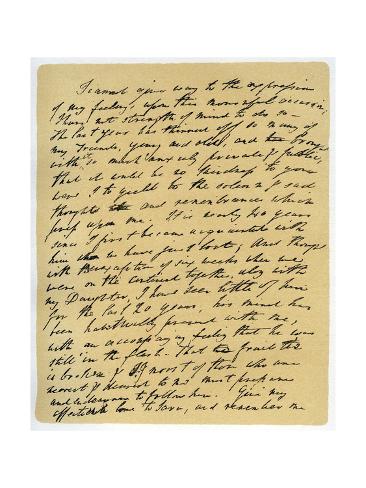 I cannot give way to the expression
of my feelings upon this mournful occasion;
I have not strength of mind to do so—
The last year has thinned off so many of
my Friends, young and old, and brought
with it so much anxiety private & public,
that it would be no kindness to you
were I to yield to the solemn & sad
thoughts and remembrances which
press upon me. It is nearly 40 years
since I first became acquainted with
him whom we have just lost; and though
with the exception of six weeks when we
were on the continent together, along with
my Daughter, I have seen little of him
for the last 20 years, his mind has
been habitually present with me,
with an accompanying feeling that he was
still in the flesh. That frail tie
is broken & I, & most of those who are
nearest & dearest to me must prepare
and endeavour to follow him. Give my
affectionate love to Sara, and remember me